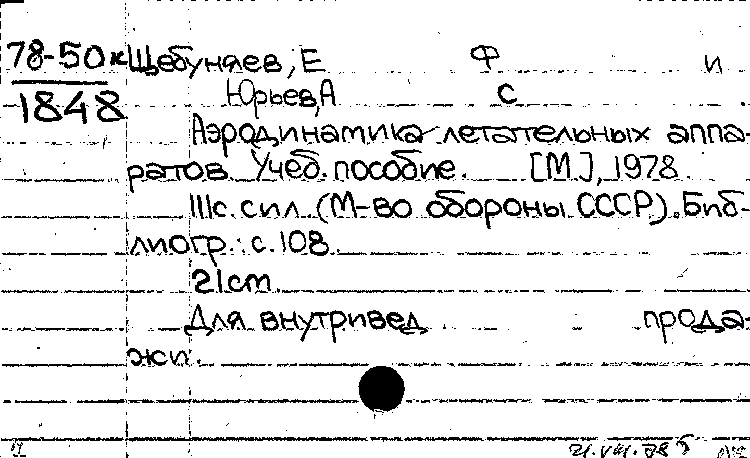 78-50к Щебуняев, Е Ф и
1848 Юрьев, А С
Аэродинамика летательных аппа-
ратов. Учеб. пособие. [М.], 1978.
111с. с ил. (М-во обороны СССР). Биб-
лиогр.: с. 108.
21см
Для внутривед прода-
жи.